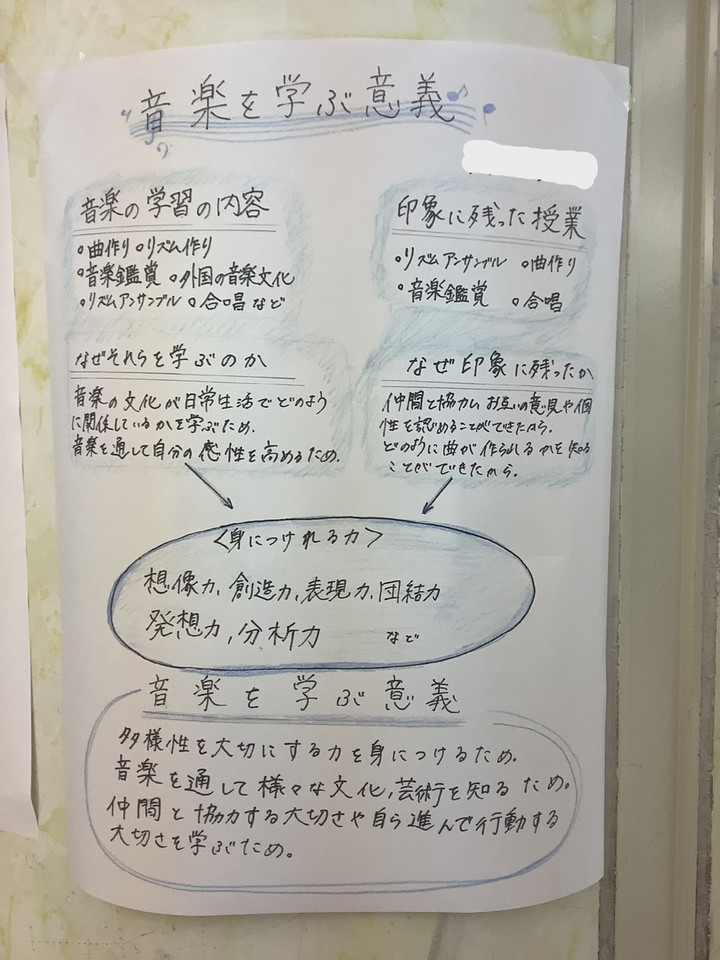 音楽を学ぶ意義
音楽の学習の内容
•曲作り •リズム作り
•音楽鑑賞 •外国の音楽文化
•リズムアンサンブル •合唱 など
印象に残った授業
•リズムアンサンブル •曲作り
•音楽鑑賞 •合唱
なぜそれらを学ぶのか
音楽の文化が日常生活でどのよう
に関係しているかを学ぶため。
音楽を通して自分の感性を高めるため。
なぜ印象に残ったか
仲間と協力し お互いの意見や個
性を認めることができたから。
どのように曲が作られるかを知る
ことができたから。
〈身につけれる力〉
想像力,創造力,表現力,団結力
発想力,分析力 など
音楽を学ぶ意義
多様性を大切にする力を身につけるため。
音楽を通して様々な文化,芸術を知るため。
仲間と協力する大切さや自ら進んで行動する
大切さを学ぶため。